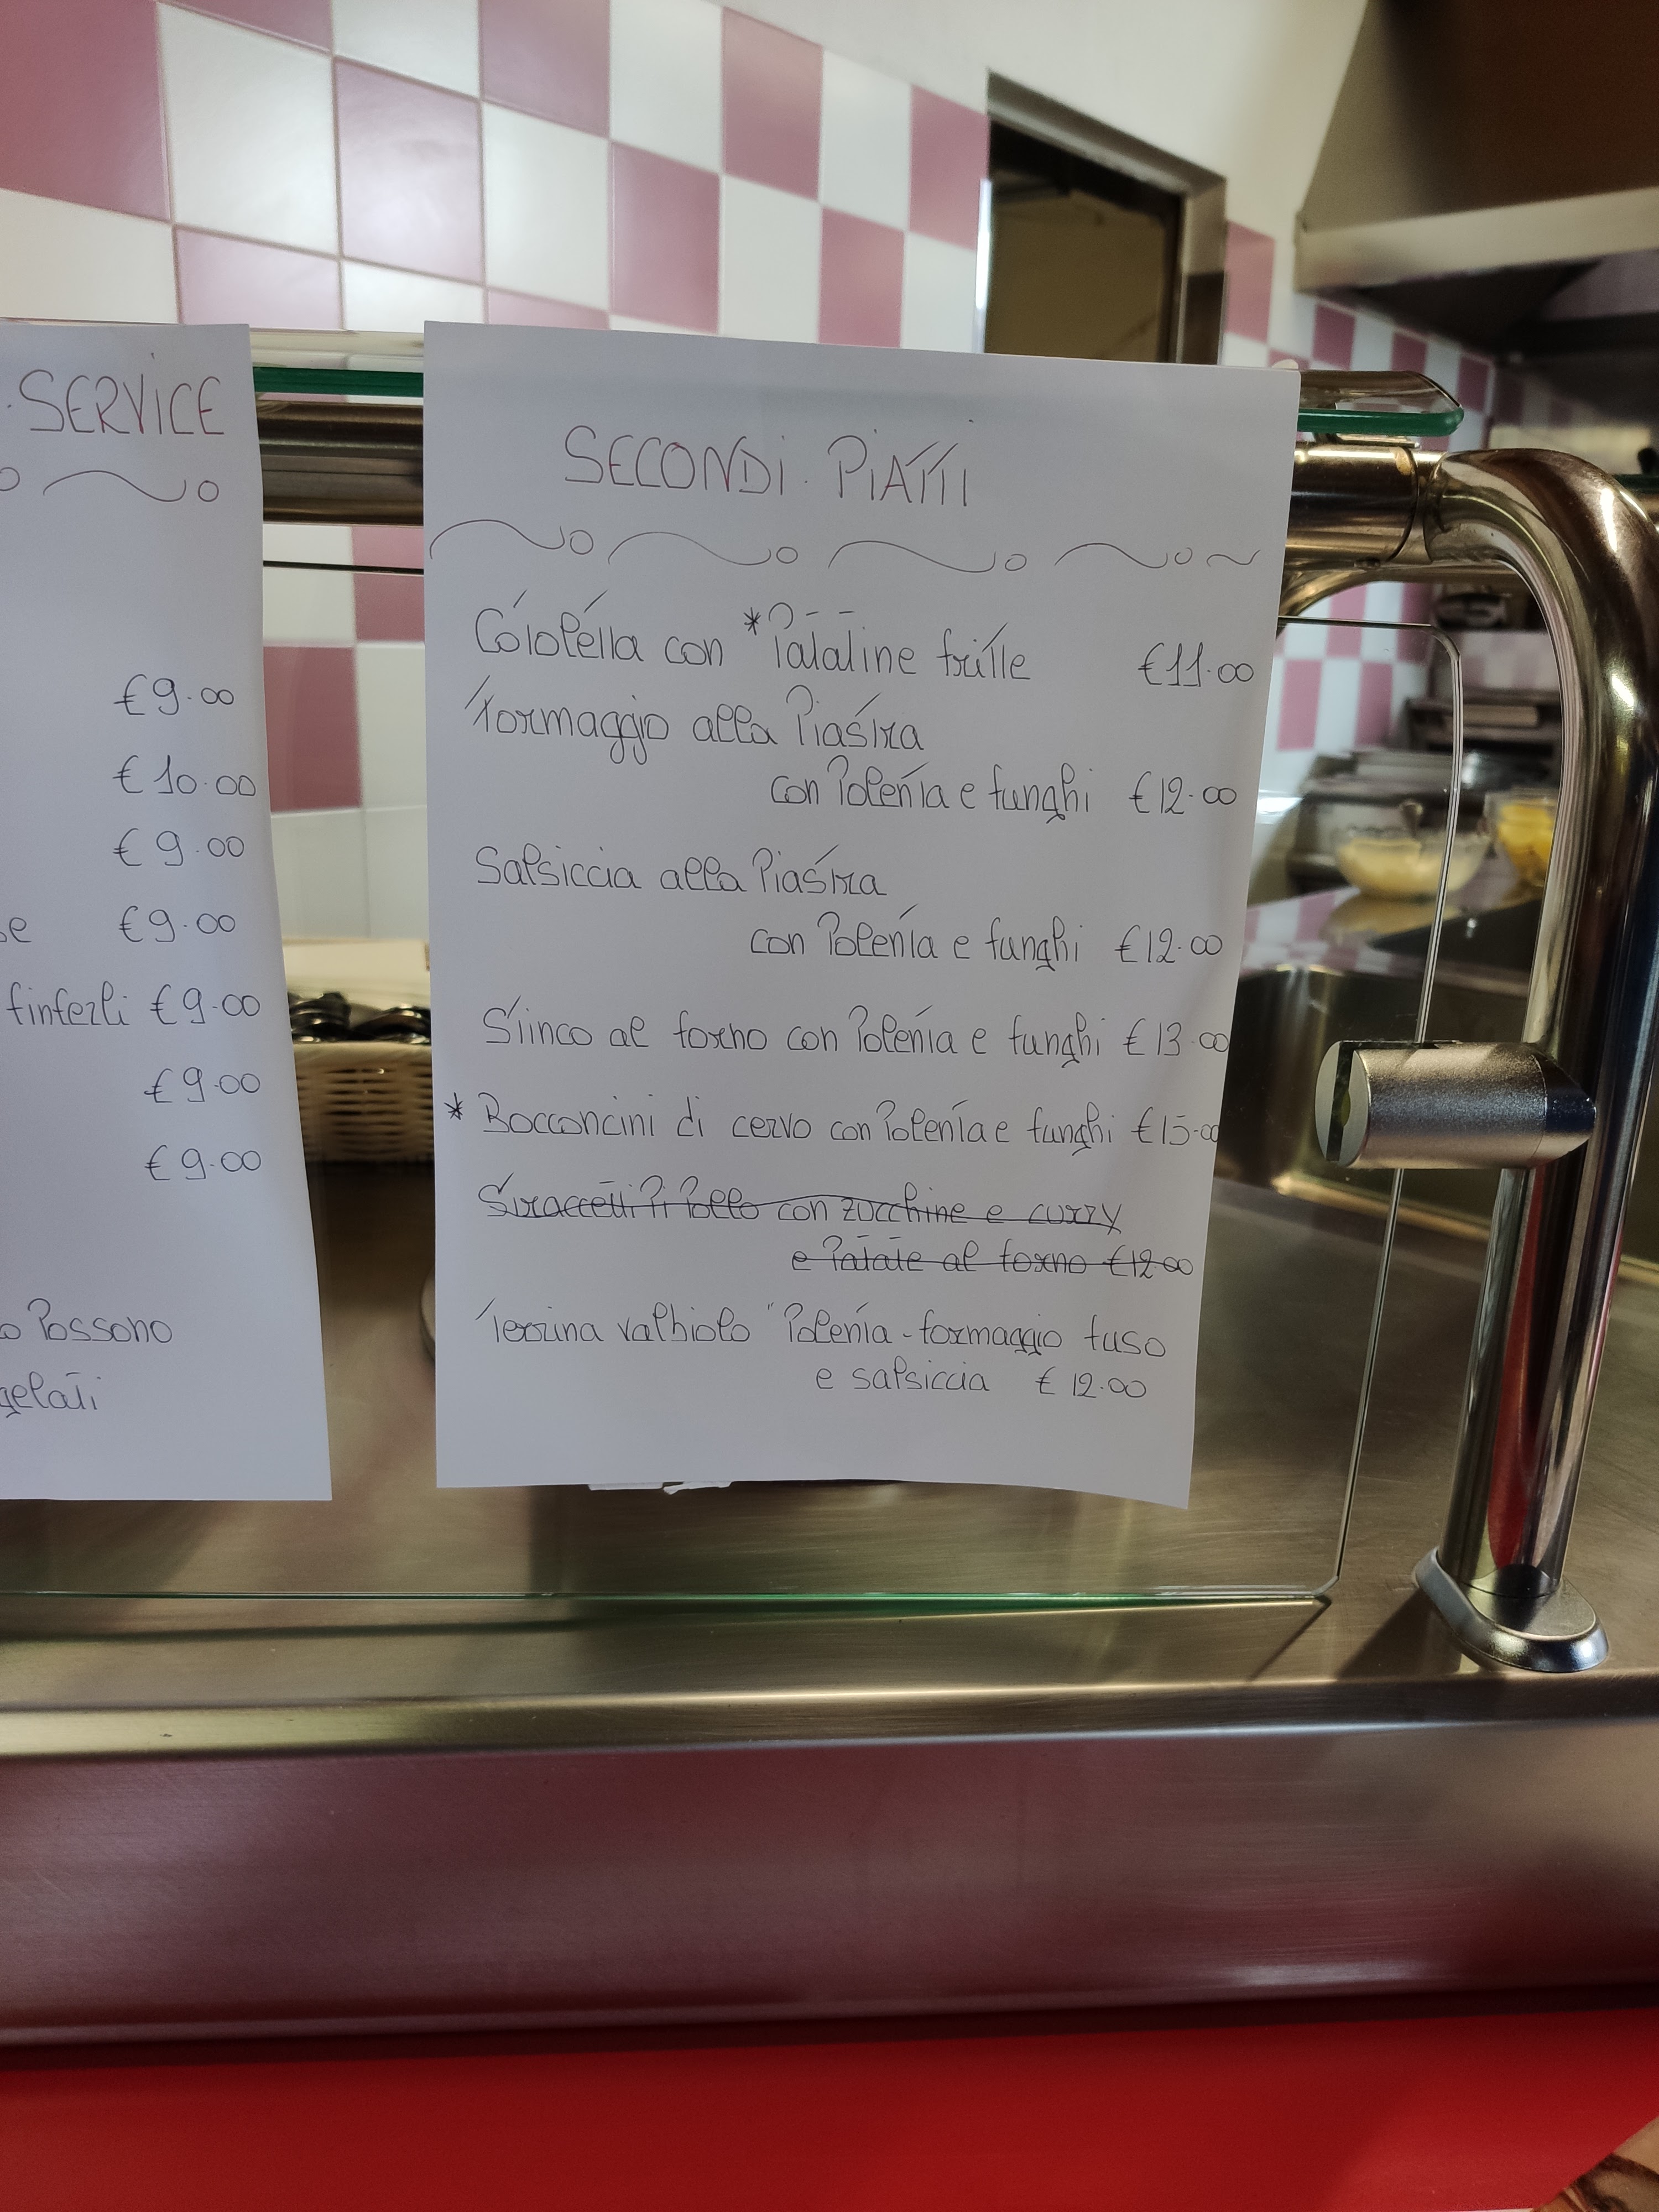 SERVICE
€9.00
€10.00
€9.00
se €9.00
finferli €9.00
€9.00
€9.00
o Possono
gelati
SECONDI PIATTI
Cotoletta con *Patatine fritte €11.00
Formaggio alla Piastra
con Polenta e funghi €12.00
Salsiccia alla Piastra
con Polenta e funghi €12.00
Stinco al forno con Polenta e funghi €13.00
* Bocconcini di cervo con Polenta e funghi €15.00
Straccetti Di Pollo con zucchine e curry
e Patate al forno €12.00
Terrina valbiolo "Polenta-formaggio fuso
e salsiccia €12.00